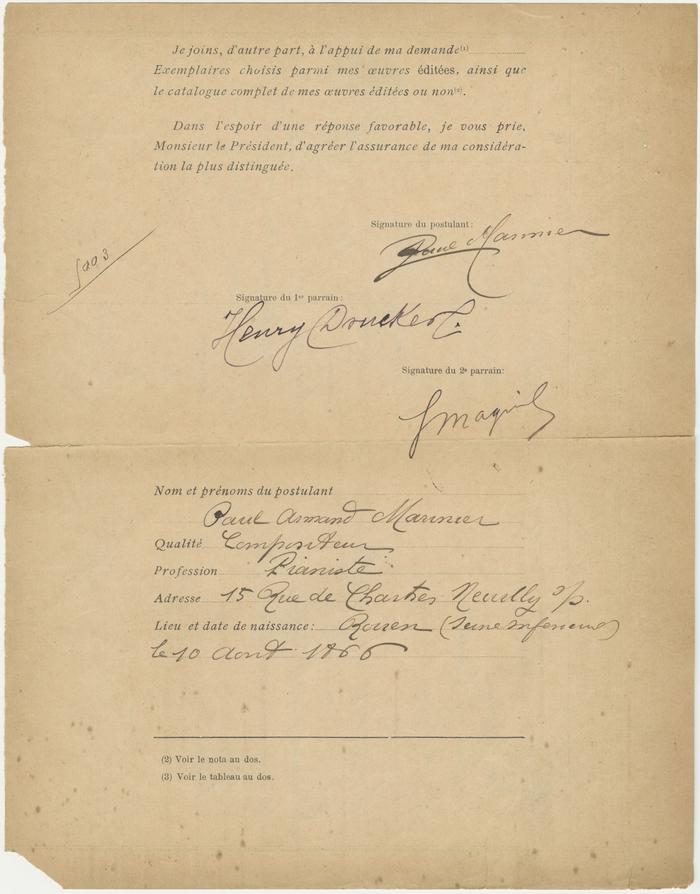 Je joins, d'autre part, à l'appui de ma demande(1)
Exemplaires choisis parmi mes œuvres éditées, ainsi que
le catalogue complet de mes œuvres éditées ou non(2).
Dans l'espoir d'une réponse favorable, je vous prie,
Monsieur le Président, d'agréer l'assurance de ma considéra-
tion la plus distinguée.
Signature du postulant:
Paul Marinier
Signature du 1er parrain:
Henry Drucker
Signature du 2e parrain:
Nom et prénoms du postulant
Paul Armand Marinier
Qualité Compositeur
Profession Pianiste
Adresse 15 Rue de Chartres Neuilly s/s.
Lieu et date de naissance: Rouen (Seine Inferieure)
le 10 Aout 1866
(2) Voir le nota au dos.
(3) Voir le tableau au dos.